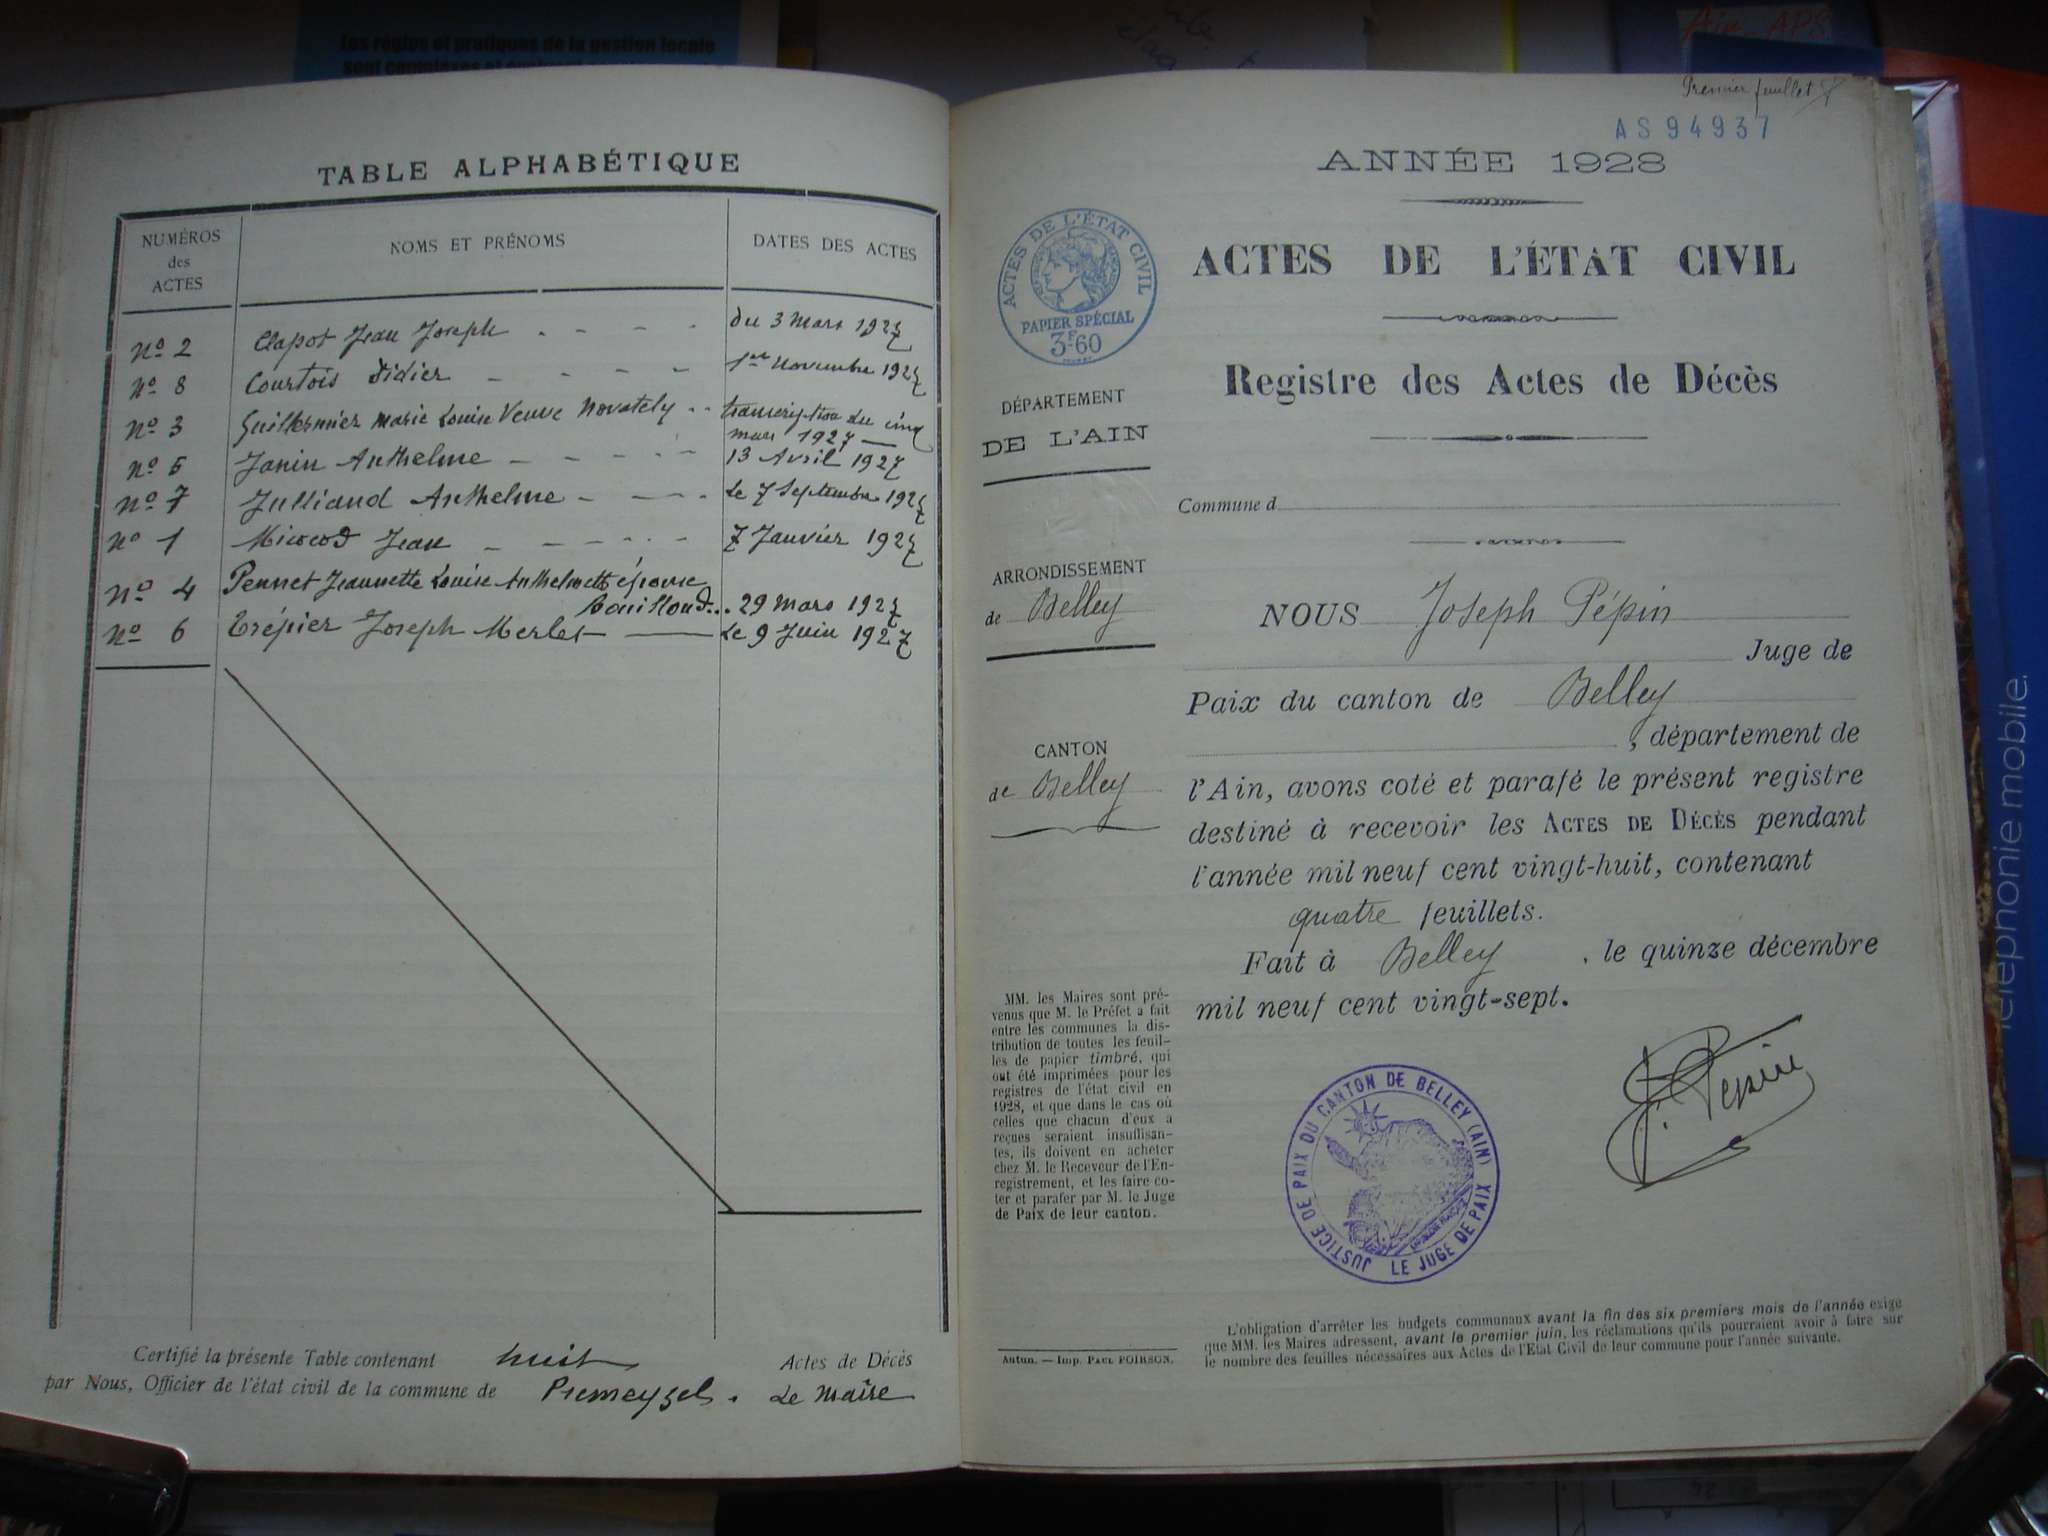 Les règles et pratiques de la gestion locale
Ain APS
TABLE ALPHABÉTIQUE
NUMÉROS des ACTES
NOMS ET PRÉNOMS
DATES DES ACTES
No 2 Clapot Jean Joseph du 3 Mars 1927
No 8 Courtois Didier 1er Novembre 1927
No 3 Guillermier Marie Louise Veuve Novately transcription du cinq
mars 1927
No 5 Janin Anthelme 13 Avril 1927
No 7 Julliand Anthelme Le 7 Septembre 1927
No 1 Micoud Jean 7 Janvier 1927
No 4 Pennet Jeannette Louise Anthelmette épouse
Bouilloud 29 Mars 1927
No 6 Trépier Joseph Merlet Le 9 Juin 1927
Certifié la présente Table contenant huit Actes de Décès
par Nous, Officier de l'état civil de la commune de Premeyzel. Le Maire
Premier feuillet
AS94937
ANNÉE 1928
ACTES DE L'ÉTAT CIVIL
PAPIER SPÉCIAL
3F60
ACTES DE L'ÉTAT CIVIL
Registre des Actes de Décès
DÉPARTEMENT
DE L'AIN
Commune d
ARRONDISSEMENT
de Belley
NOUS Joseph Pépin
Juge de
Paix du canton de Belley
, département de
CANTON
de Belley
l'Ain, avons coté et parafé le présent registre
destiné à recevoir les ACTES DE DÉCÈS pendant
l'année mil neuf cent vingt-huit, contenant
quatre feuillets.
Fait à Belley , le quinze décembre
mil neuf cent vingt-sept.
MM. les Maires sont pré-
venus que M. le Préfet a fait
entre les communes la dis-
tribution de toutes les feuil-
les de papier timbré, qui
ont été imprimées pour les
registres de l'état civil en
1928, et que dans le cas où
celles que chacun d'eux a
reçues seraient insuffisan-
tes, ils doivent en acheter
chez M. le Receveur de l'En-
registrement, et les faire co-
ter et parafer par M. le Juge
de Paix de leur canton.
J. Pépin
JUSTICE DE PAIX DU CANTON DE BELLEY (AIN)
LE JUGE DE PAIX
Autun. — Imp. PAUL POIRSON.
L'obligation d'arrêter les budgets communaux avant la fin des six premiers mois de l'année exige
que MM. les Maires adressent, avant le premier juin, les réclamations qu'ils pourraient avoir à faire sur
le nombre des feuilles nécessaires aux Actes de l'Etat Civil de leur commune pour l'année suivante.
téléphonie mobile.